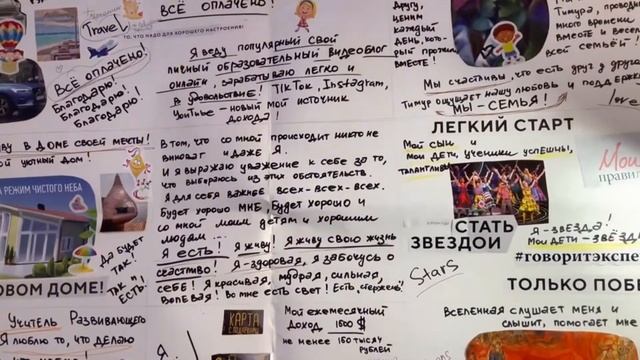 ВСЁ ОПЛАЧЕНО!
Travel
ТО, ЧТО НАДО ДЛЯ ХОРОШЕГО НАСТРОЕНИЯ!
ВСЁ ОПЛАЧЕНО!
Благодарю!
Благодарю!
Благодарю!
Я веду популярный свой
личный образовательный видеоблог
онлайн, зарабатываю легко и
в удовольствие! TikTok, Instagram,
YouTube - новый мой источник
дохода!
другу,
ценим
каждый
день, кот-
вместе!
Тимура, проводим
много времени
вместе и весело
всей семьёй!
Мы счастливы, что есть друг у друга
Тимур ощущает нашу любовь и поддерж
МЫ - СЕМЬЯ!
love
В ДОМЕ СВОЕЙ МЕЧТЫ!
уютный дом!
РЕЖИМ ЧИСТОГО НЕБА
ДА БУДЕТ
ТАК!
ТАК И
ЕСТЬ!
ОВОМ ДОМЕ!
В том, что со мной происходит никто не
виноват и даже Я.
И я выражаю уважение к себе за то,
что выбираюсь из этих обстоятельств.
Я для себя важнее всех-всех-всех.
Будет хорошо мне, будет хорошо и
со мной моим детям и хорошим
людям.
Я есть! Я живу! Я живу свою жизнь
счастливо! Я - здоровая, я забочусь о
себе! Я красивая, мудрая, сильная,
волевая! Во мне есть свет! Есть „стержень"
ЛЕГКИЙ СТАРТ
Мой сын и
мои дети, ученики успешны,
талантливы
Мои
прави
СТАТЬ
ЗВЕЗДОЙ
Stars
Я - ЗВЕЗДА!
Мои дети - ЗВЁЗД
#говоритэкспе
ТОЛЬКО ПОБЕ
Вселенная слушает меня и
слышит, помогает мне
Учитель Развивающего
Я люблю то, что делаю
КАРТА
Я
Мой ежемесячный
доход 1500 $
не менее 150 тысяч
рублей